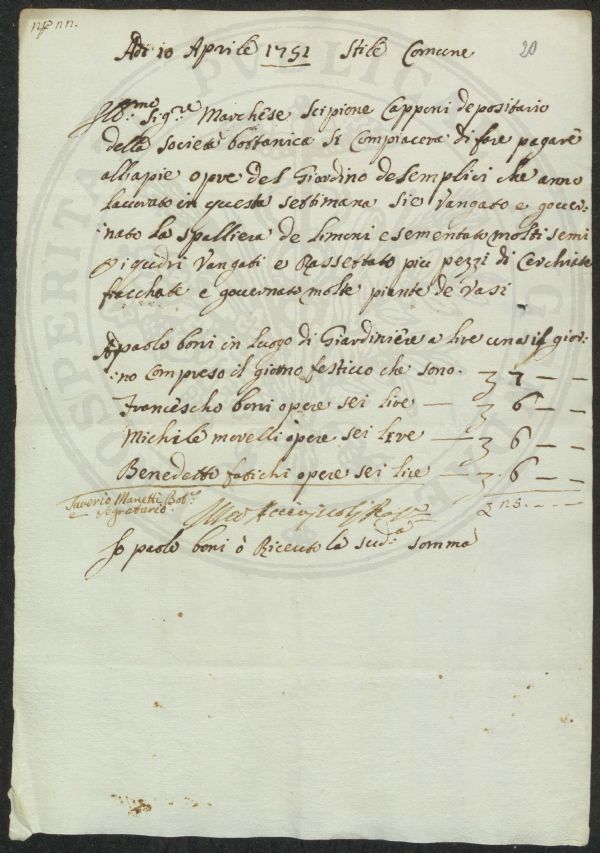 nf nn.
20
Adi 10 Aprile 1751 Stile Comune
Ill.mo Sig.re Marchese Scipione Capponi depositario
della Società bottanica Si Compiacerà di fare pagare
all'apie opre del Giardino de Semplici che anno
lavorato in questa settimana Si è Vangato e gover-
:nato la Spalliera de Limoni e sementato molti semi
e i qudri Vangati e Rassettato più pezzi di Cerchiate
fracchate e governato molte piante de Vasi
A paolo boni in luogo di Giardinière a lire una il gior-
:no Compreso il giorno festivo che sono - 7 - -
Francescho boni opere sei lire - 6 - -
Michele morelli opere sei lire - 6 - -
Benedetto fatichi opere sei lire - 6 - -
25 - -
Saverio Manetti Bot.
Segretario.
Io paolo boni ò Riceuto la sud.a somma
PVBLIC
PROSPERITA